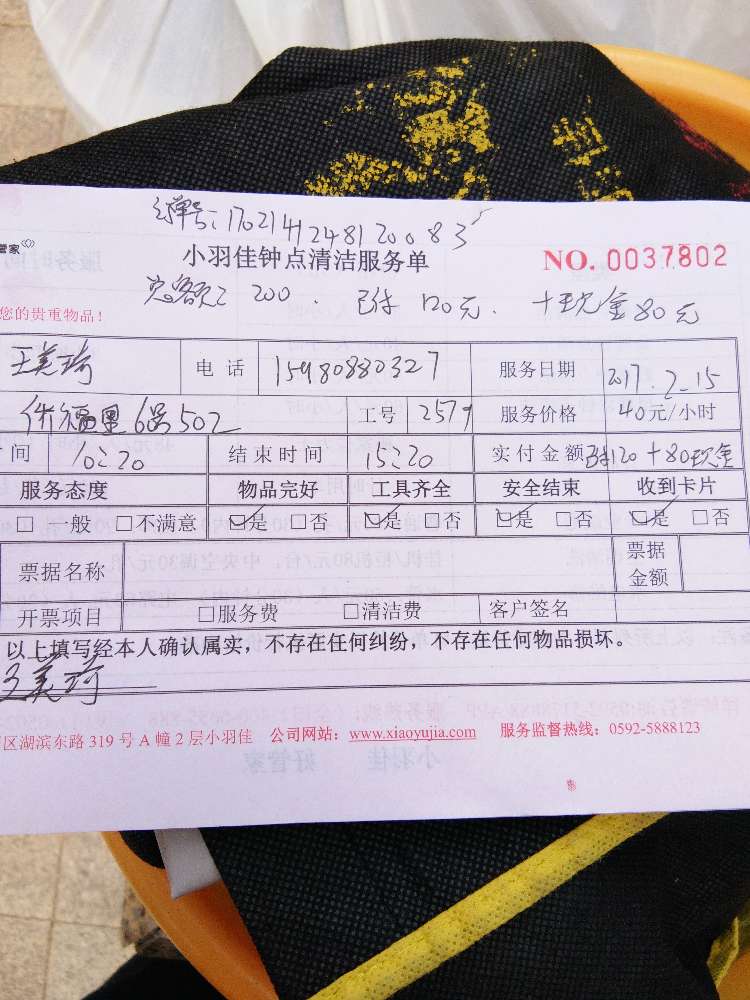 订单号:170214124812008 35
管家
小羽佳钟点清洁服务单 NO. 0037802
总额: 200. 已付 120元. 十现金80元
您的贵重物品!
王美琦 电话 15980880327 服务日期 2017.2-15
福里6号502 工号 257 服务价格 40元/小时
间 10:20 结束时间 15:20 实付金额 已付120+80现金
服务态度 物品完好 工具齐全 安全结束 收到卡片
□ 一般 □不满意 ☑是 □否 ☑是 □否 ☑是 □否 ☑是 □否
票据名称 票据金额
开票项目 □服务费 □清洁费 客户签名
以上填写经本人确认属实,不存在任何纠纷,不存在任何物品损坏。
王美琦
区湖滨东路 319 号 A 幢 2 层小羽佳 公司网站:www.xiaoyujia.com 服务监督热线:0592-5888123